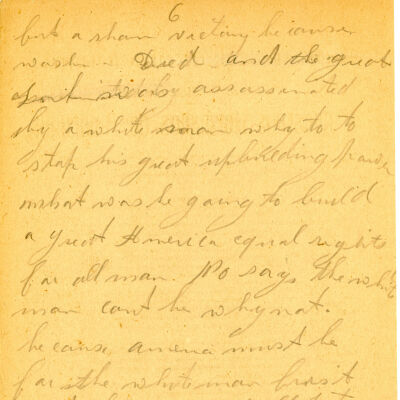 6
but a sham victory because
was Died and the great
by assassinated
by a white man why to to
stop his great upbuilding power
what was he going to build
a great America equal rights
for all man. No says the white
man cant be why not.
because america must be
for the white man first